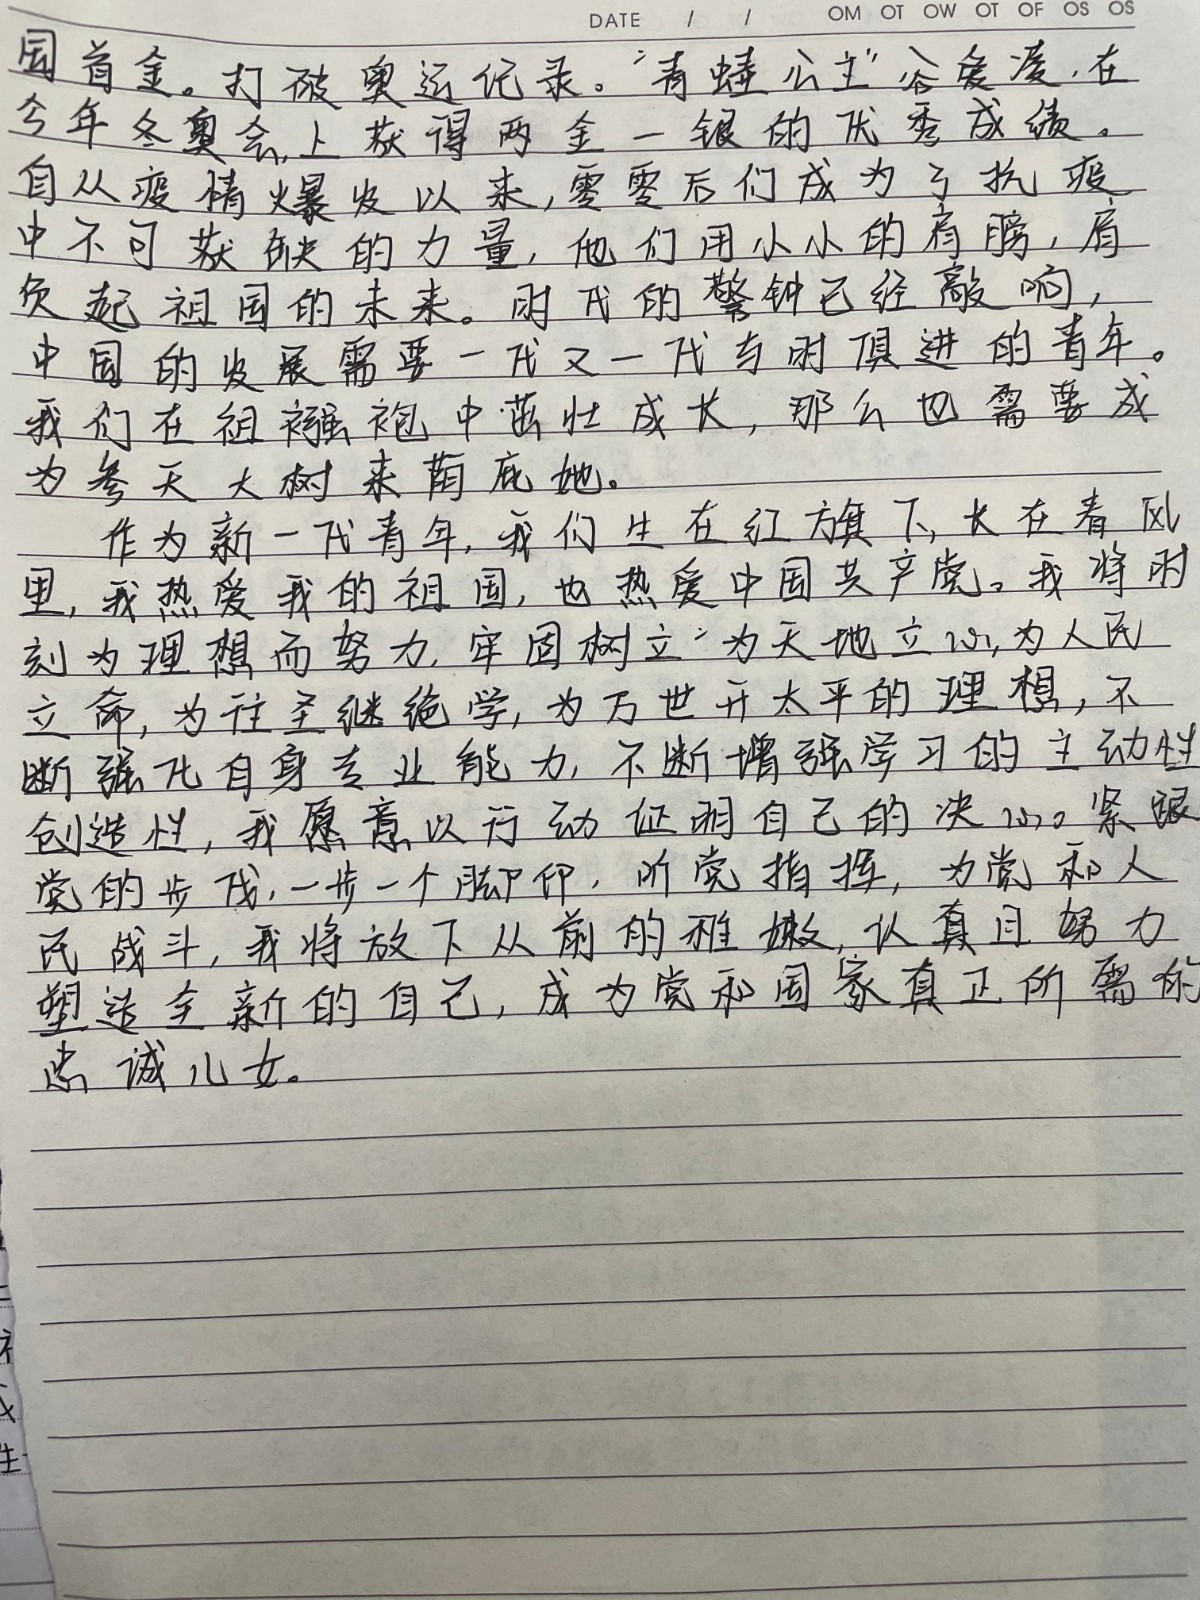 DATE / / OM OT OW OT OF OS OS
国首金。打破奥运纪录。“青蛙公主”谷爱凌,在
今年冬奥会上获得两金一银的优秀成绩。
自从疫情爆发以来,零零后们成为了抗疫
中不可获缺的力量,他们用小小的肩膀,肩
负起祖国的未来。时代的警钟已经敲响,
中国的发展需要一代又一代与时俱进的青年。
我们在祖襁袍中茁壮成长,那么也需要成
为参天大树来荫庇她。
作为新一代青年,我们生在红旗下,长在春风
里,我热爱我的祖国,也热爱中国共产党。我将时
刻为理想而努力,牢固树立“为天地立心,为人民
立命,为往圣继绝学,为万世开太平的理想,不
断强化自身专业能力,不断增强学习的主动性
创造性,我愿意以行动证明自己的决心。紧跟
党的步伐,一步一个脚印,听党指挥,为党和人
民战斗,我将放下从前的稚嫩,认真且努力
塑造全新的自己,成为党和国家真正所需的
忠诚儿女。